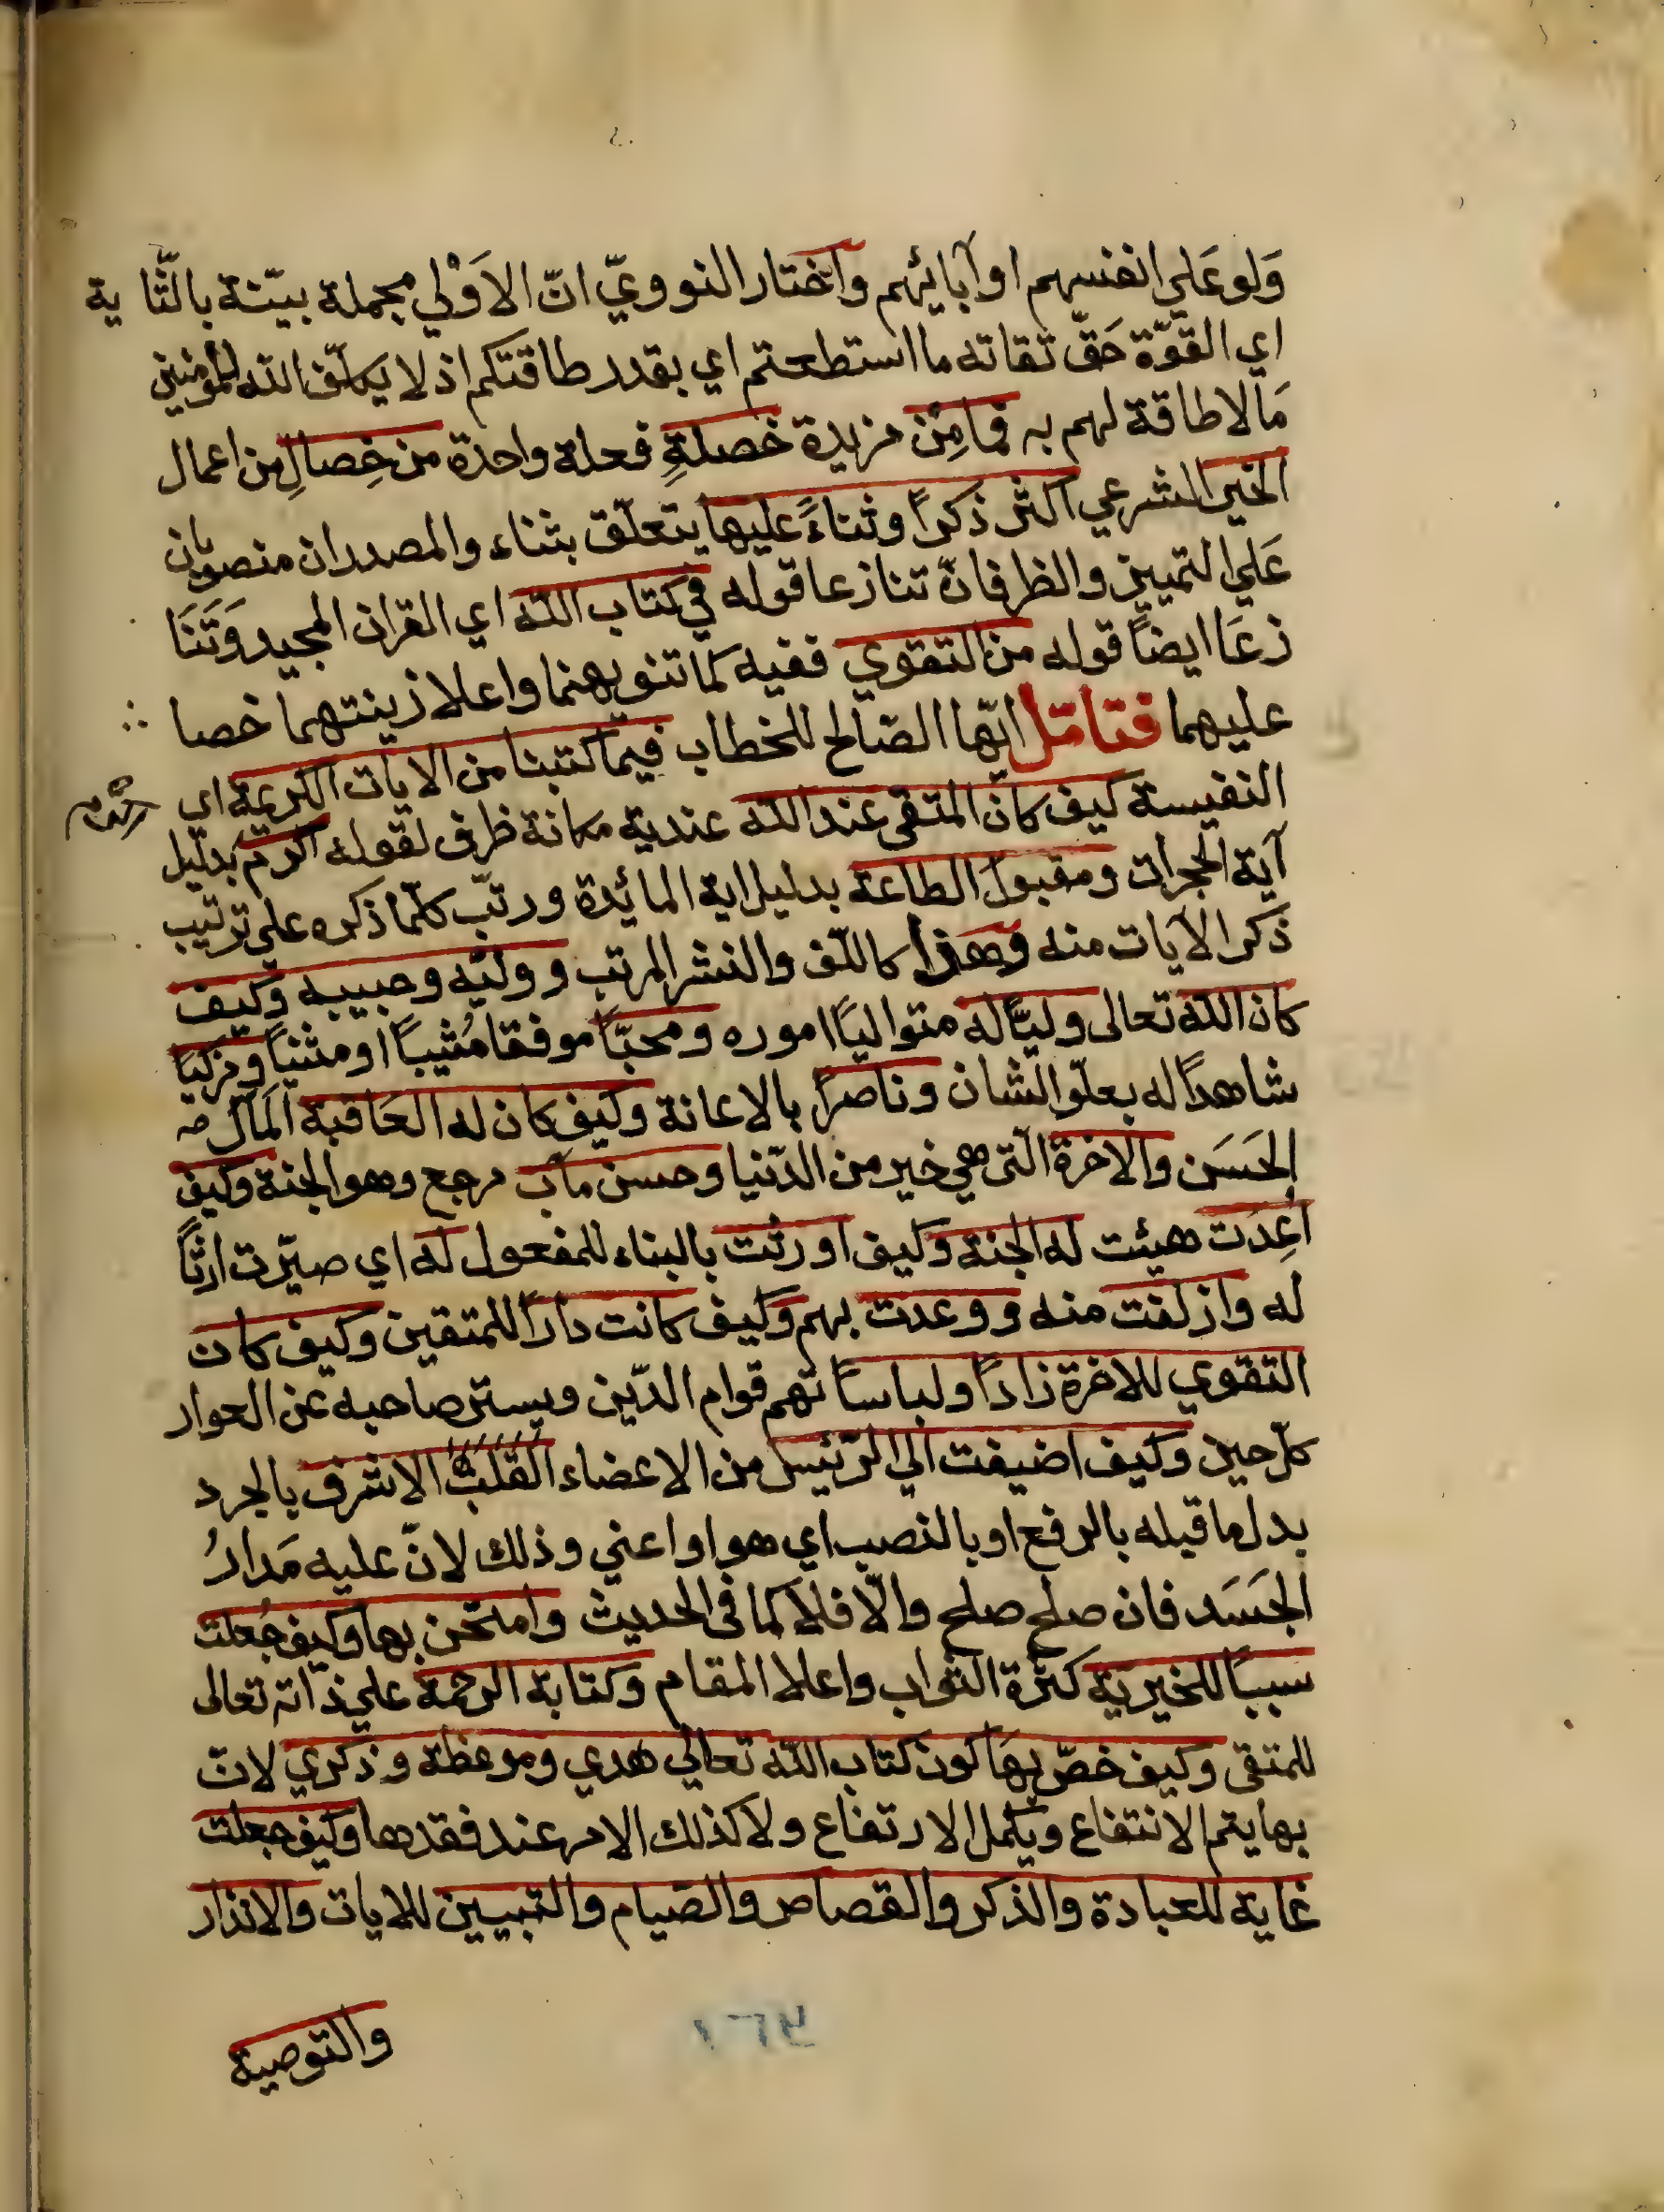 وَلو عَلي انفسهم او آبائهم واختار النوويّ انّ الاَوْلي مجملة بيّنة بالثّا ية
اي القوّة حَقّ تقاته ما استطعتم اي بقدر طاقتكم اذ لا يكلّف الله المؤمنين
مَا لا طاقة لهم به فما مِن مزيدة خصلةٍ فعلة واحدة من خِصالِ من اعمال
الخير الشرعي اكثر ذكراً وثناءً عليها يتعلّق بثناء والمصدران منصوبان
عَلي التمييز والظرفان تنازعا قوله في كتاب الله اي القران المجيد وَتَنَا
زعَا ايضاً قوله من التقوي ففيه كما تنويههما واعلا زينتهما خصا
عليهما فتامّل ايّها الصّالح للخطاب فيما كتبنا من الايات الكريمة اي
النفيسة كيف كان المتقى عند الله عندية مكانة ظرف لقوله اكرم بدليل
آية الحجرات ومقبول الطاعة بدليل اية المائدة ورتّب كلّما ذكره علي ترتيب
ذكر الآيات منه وهذا كاللّف والنشر المرتب ووليّه وحبيبه وكيف
كان الله تعالى وليّاً له متوالياً اموره ومحبّاً موفقا مُثيباً او مثنياً ومزكيا
شاهداً له بعلوّ الشان وناصراً بالاعانة وكيف كان له العَاقبة المَآل
الحَسَن والاخرة الّتى هي خير من الدّنيا وحسن مآب مرجع وهو الجنة وكيف
اعِدت هيئت له الجنة وكيف اورثت بالبناء للمفعول له اي صيّرت ارثاً
له وازلفت منه ووعدت بهم وكيف كانت داراً للمتقين وكيف كان
التقوي للاخرة زاداً ولباساً تهم قوام الدّين ويستر صاحبه عن العوار
كلّ حين وكيف اضيفت الي الرّئيس من الاعضاء القلب الاشرف بالجر د
بدل ما قبله بالرفع او بالنصب اي هو او اعني وذلك لانّ عليه مَدارُ
الجَسَد فان صلح صلح والّا فلا كما في الحديث وامتحن بها وكيف جُعلت
سبباً للخيرية كثرة الثواب واعلا المقام وكتابة الرحمة علي ذاته تعالى
للمتقى وكيف خصّ بهَا كون كتاب الله تعالي هدي وموعظة وذكري لان
بها يتم الانتفاع ويكمل الارتفاع ولا كذلك الامر عند فقدها وكيف جعلت
غاية للعبادة والذكر والقصاص والصّيام والتبيين للايات والانذار
والتوصية